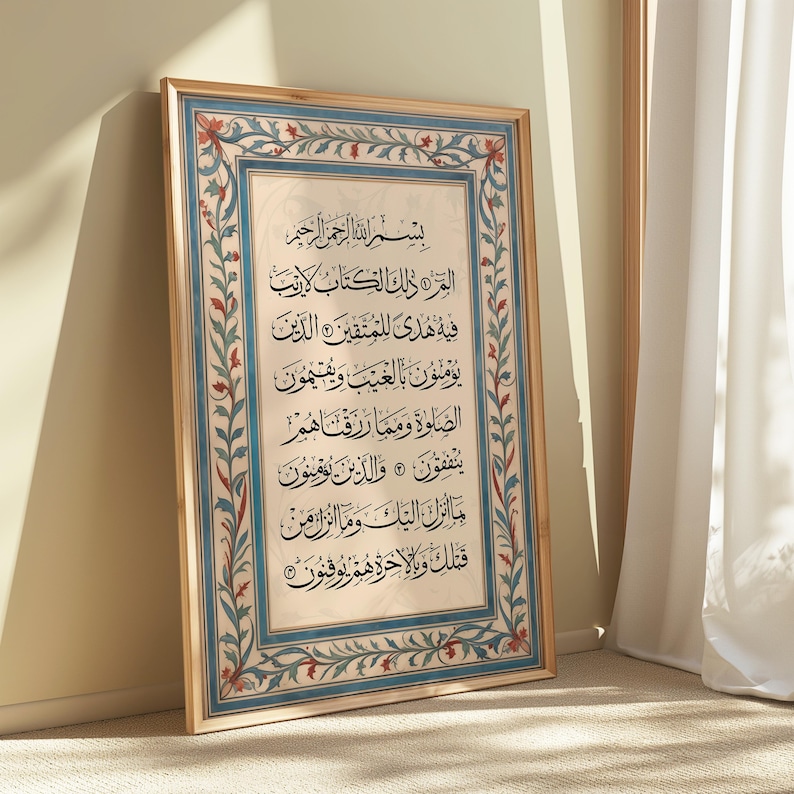 بِسْمِ اللَّهِ الرَّحْمَنِ الرَّحِيمِ
الم ۝١ ذَلِكَ الْكِتَابُ لَا رَيْبَ
فِيهِ هُدًى لِلْمُتَّقِينَ ۝٢ الَّذِينَ
يُؤْمِنُونَ بِالْغَيْبِ وَيُقِيمُونَ
الصَّلَوةَ وَمِمَّا رَزَقْنَاهُمْ
يُنْفِقُونَ ۝٣ وَالَّذِينَ يُؤْمِنُونَ
بِمَا أُنْزِلَ إِلَيْكَ وَمَا أُنْزِلَ مِنْ
قَبْلِكَ وَبِالْآخِرَةِ هُمْ يُوقِنُونَ ۝٤